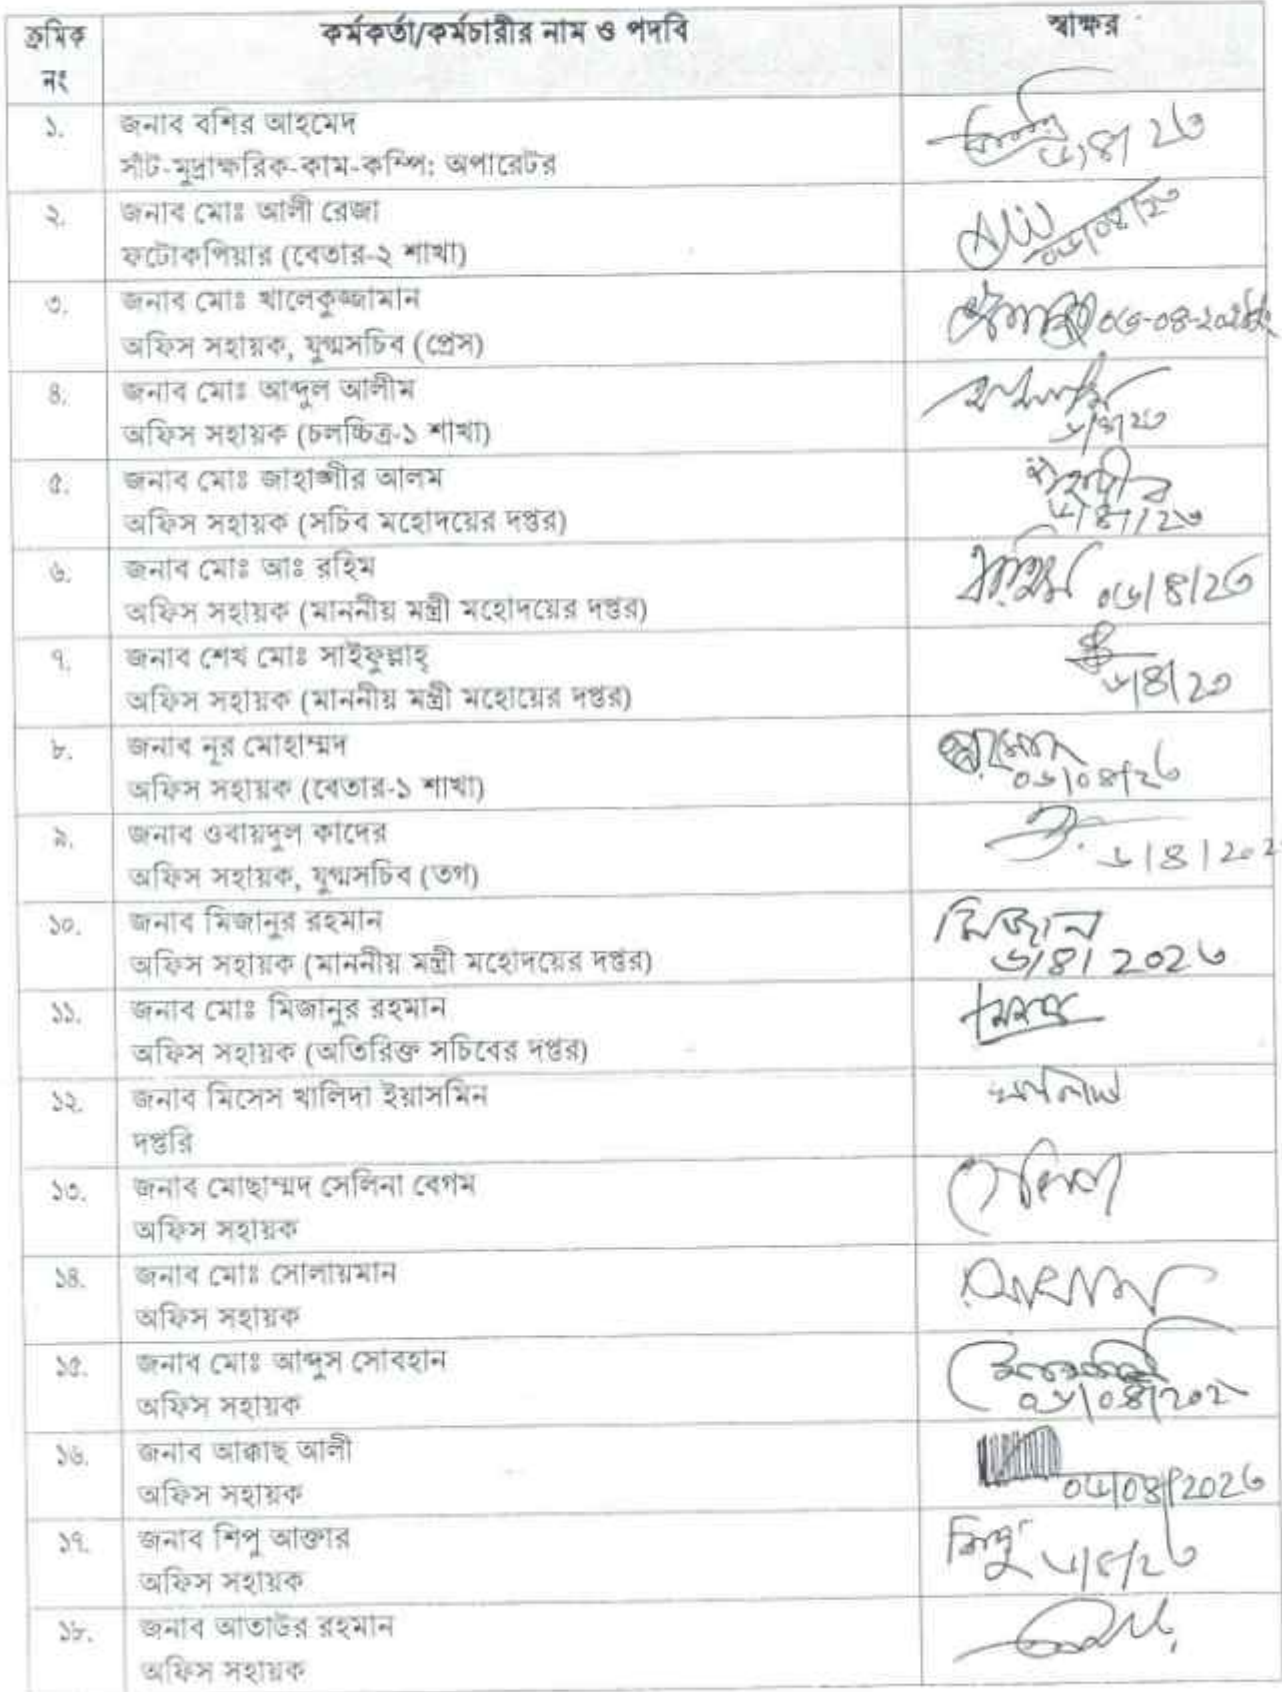 ক্রমিক নং	কর্মকর্তা/কর্মচারীর নাম ও পদবি	স্বাক্ষর
১.	জনাব বশির আহমেদ
সাঁট-মুদ্রাক্ষরিক-কাম-কম্পি: অপারেটর
২.	জনাব মোঃ আলী রেজা
ফটোকপিয়ার (বেতার-২ শাখা)
৩.	জনাব মোঃ খালেকুজ্জামান
অফিস সহায়ক, যুগ্মসচিব (প্রেস)
৪.	জনাব মোঃ আব্দুল আলীম
অফিস সহায়ক (চলচ্চিত্র-১ শাখা)
৫.	জনাব মোঃ জাহাঙ্গীর আলম
অফিস সহায়ক (সচিব মহোদয়ের দপ্তর)
৬.	জনাব মোঃ আঃ রহিম
অফিস সহায়ক (মাননীয় মন্ত্রী মহোদয়ের দপ্তর)
৭.	জনাব শেখ মোঃ সাইফুল্লাহ্
অফিস সহায়ক (মাননীয় মন্ত্রী মহোয়ের দপ্তর)
৮.	জনাব নূর মোহাম্মদ
অফিস সহায়ক (বেতার-১ শাখা)
৯.	জনাব ওবায়দুল কাদের
অফিস সহায়ক, যুগ্মসচিব (তগ)
১০.	জনাব মিজানুর রহমান	মিজান
অফিস সহায়ক (মাননীয় মন্ত্রী মহোদয়ের দপ্তর)
১১.	জনাব মোঃ মিজানুর রহমান
অফিস সহায়ক (অতিরিক্ত সচিবের দপ্তর)
১২.	জনাব মিসেস খালিদা ইয়াসমিন
দপ্তরি
১৩.	জনাব মোছাম্মদ সেলিনা বেগম
অফিস সহায়ক
১৪.	জনাব মোঃ সোলায়মান
অফিস সহায়ক
১৫.	জনাব মোঃ আব্দুস সোবহান
অফিস সহায়ক
১৬.	জনাব আক্কাছ আলী
অফিস সহায়ক
১৭.	জনাব শিপু আক্তার
অফিস সহায়ক
১৮.	জনাব আতাউর রহমান
অফিস সহায়ক